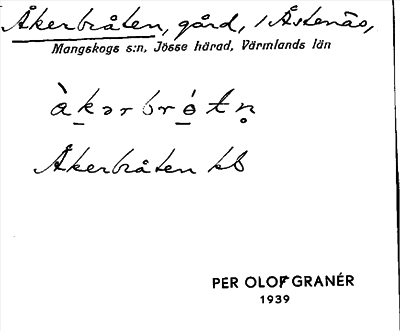 Åkerbråten, gård, i Åstenäs,
Mangskogs s:n, Jösse härad, Värmlands län
àkərbrótn̥
Åkerbråten kb
PER OLOF GRANÉR
1939